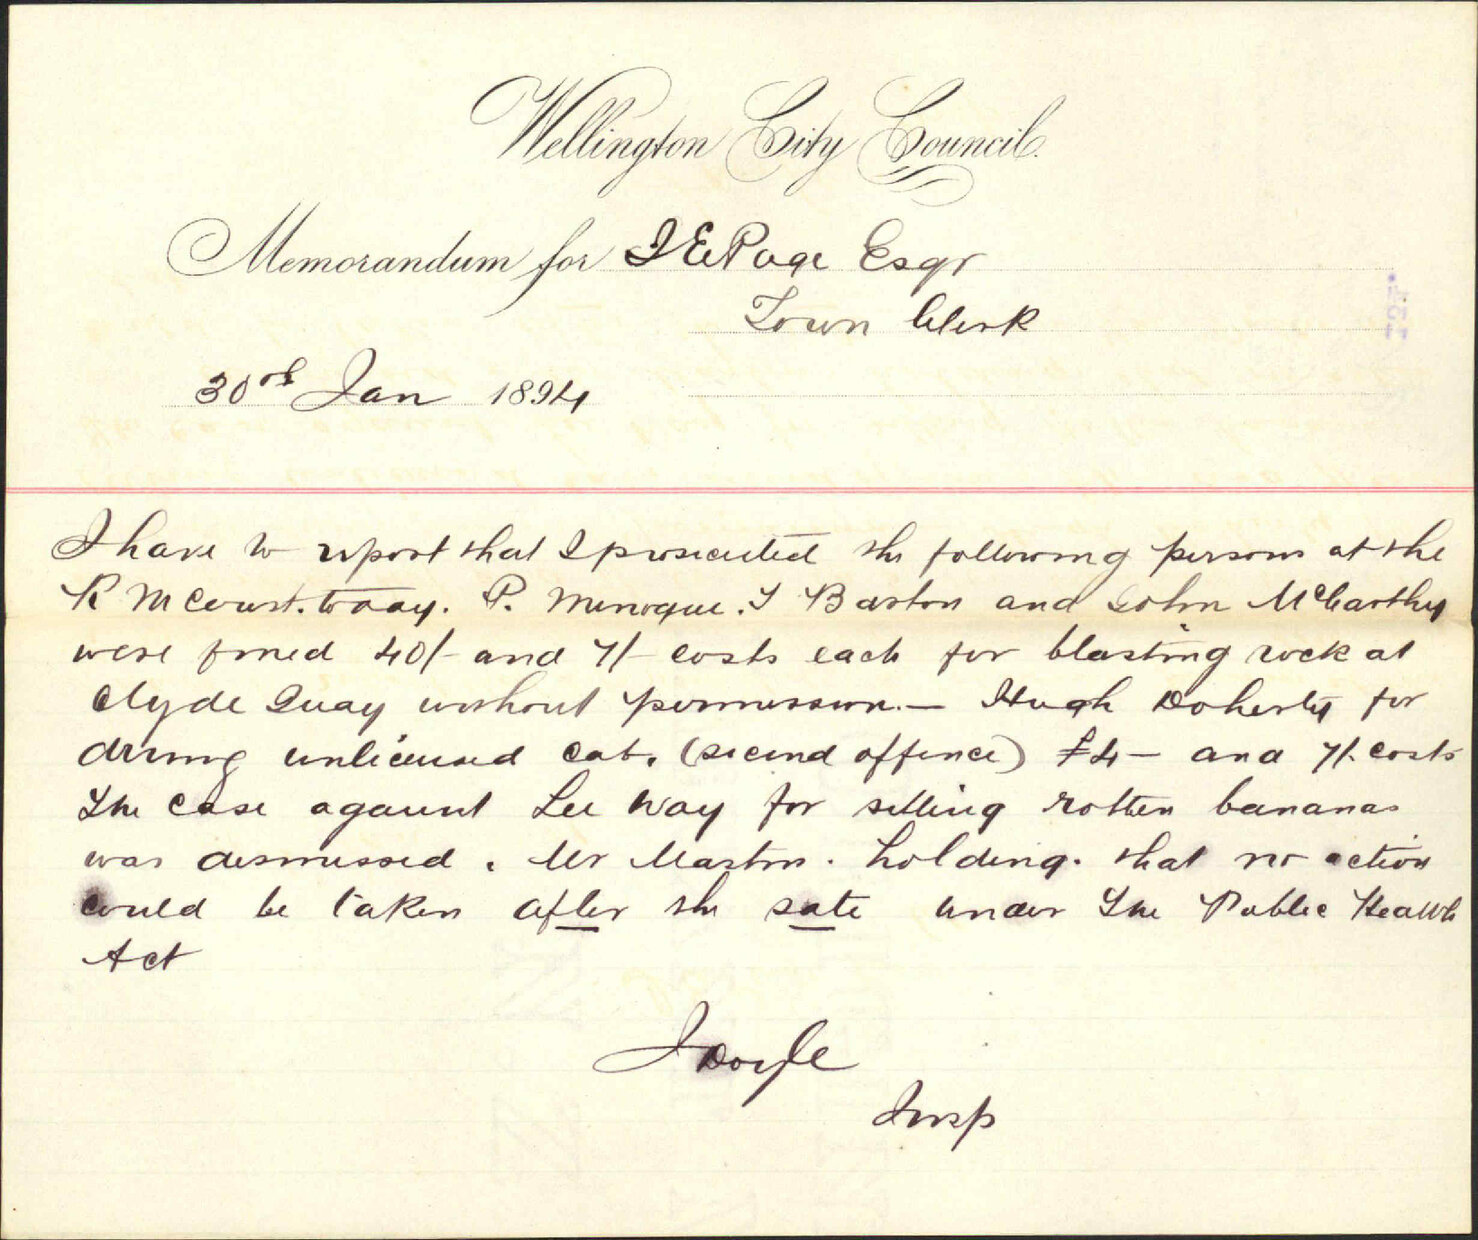 Wellington City Council.
Memorandum for J E Page Esqr
Town Clerk
30th Jan 1894
I have to report that I prosecuted the following persons at the
R M Court. today. P. Minogue. T Barton and John McCarthy
were fined 40/- and 7/- costs each for blasting rock at
Clyde Quay without permission. — Hugh Doherty for
driving unlicensed cab. (second offence) £4 — and 7/- costs
The case against Lee Way for selling rotten bananas
was dismissed. Mr Martin. holding. that no action
could be taken after the sale under The Public Health
Act
J Doyle
Insp